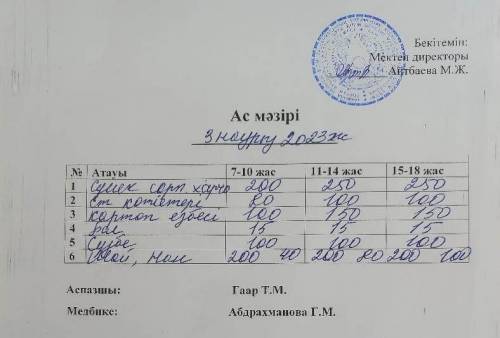 Бекітемін:
Мектеп директоры
Айтбаева М.Ж.
Ас мәзірі
3 наурыз 2023ж
№ Атауы 7-10 жас 11-14 жас 15-18 жас
1 Сүйек сорп харчо 200 250 250
2 Ет котлеттері 80 100 100
3 картоп езбесі 100 150 150
4 бал 15 15 15
5 Сүзбе 100 100 100
6 Шай, нан 200 40 200 80 200 100
Аспазшы: Гаар Т.М.
Медбике: Абдрахманова Г.М.